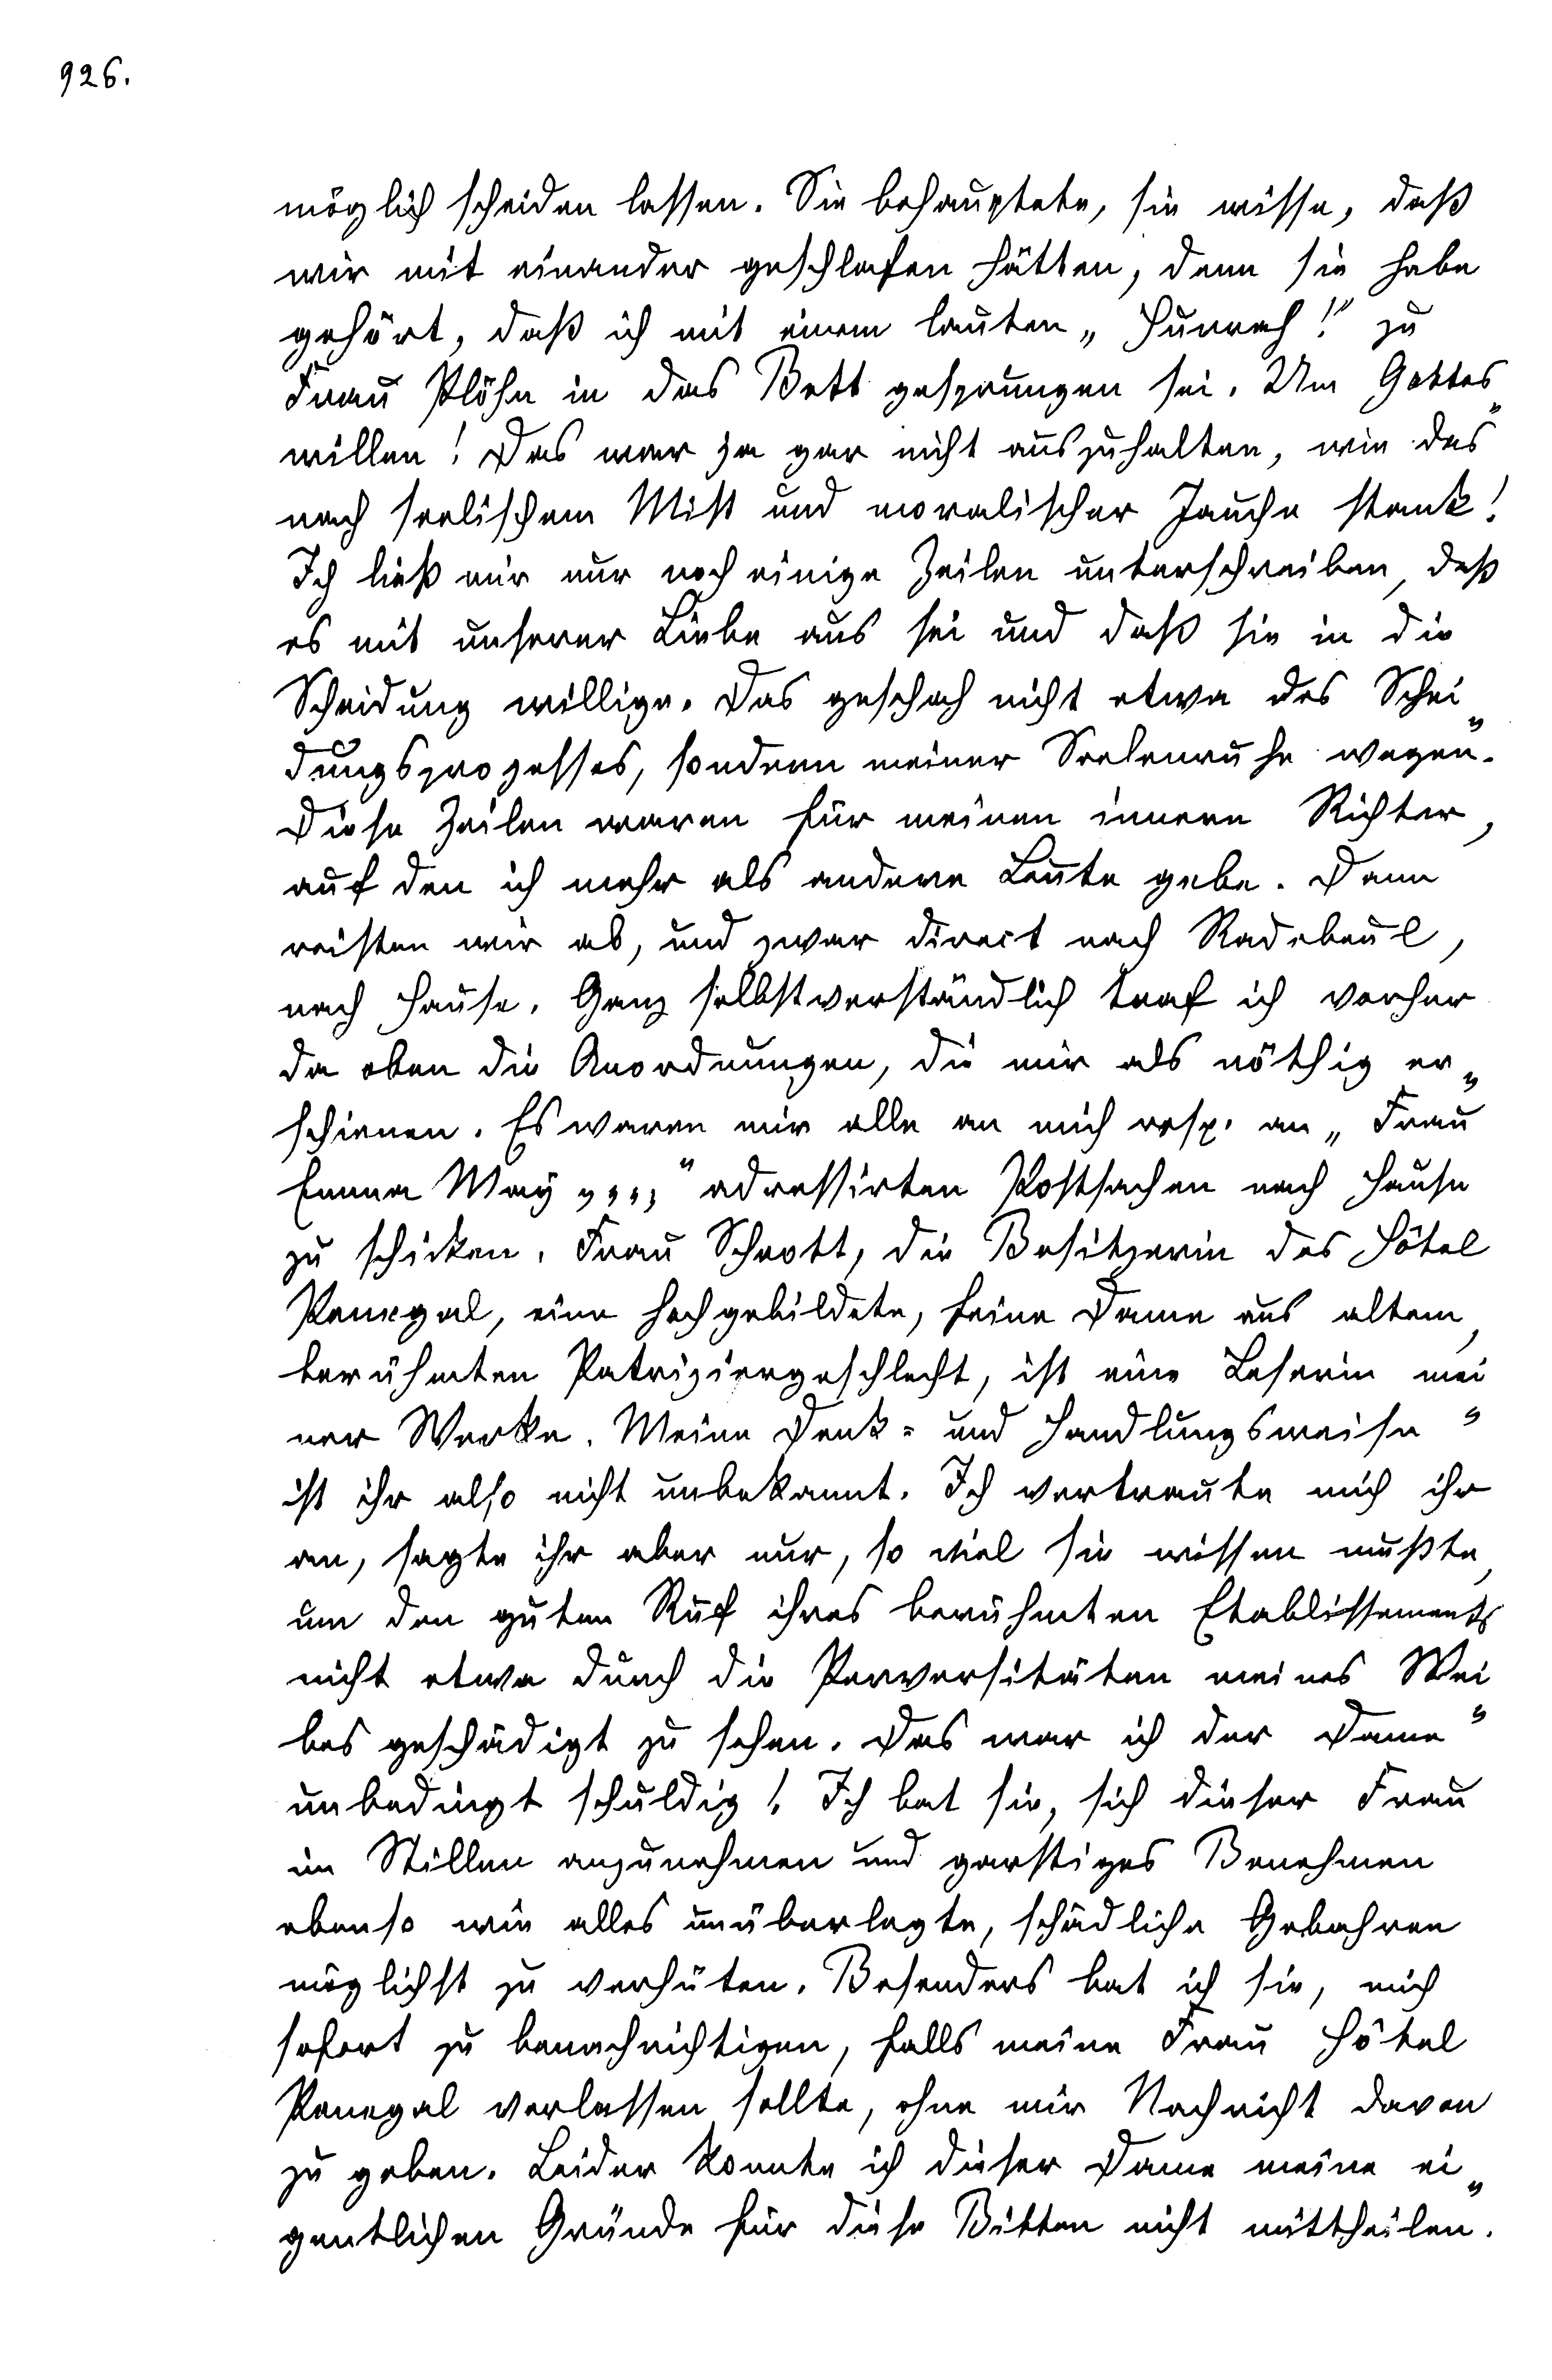 926.
möglich scheiden lassen. Sie behauptete, sie wisse, daß
wir mit einander geschlafen hätten, denn sie habe
gehört, daß ich mit einem lauten „Hurrah!“ zu
Frau Plöhn in das Bett gesprungen sei. Um Gottes„
willen! Das war ja gar nicht auszuhalten, wie das
nach seelischem Mist und moralischer Jauche stank!
Ich ließ mir nur noch einige Zeilen unterschreiben, daß
es mit unserer Liebe aus sei und daß sie in die
Scheidung willige. Das geschah nicht etwa des Schei„
dungsprozesses, sondern meiner Seelenruhe wegen.
Diese Zeilen waren für meinen innern Richter,
auf den ich mehr als andere Leute gebe. Dann
reisten wir ab, und zwar direct nach Radebeul,
nach Hause. Ganz selbstverständlich traf ich vorher
da oben die Anordnungen, die mir als nöthig er„
schienen. Es waren mir alle an mich resp. an „Frau
Emma May ,,,,“ adressirten Postsachen nach Hause
zu schicken. Frau Schrott, die Besitzerin des Hôtel
Penegal, eine hochgebildete, feine Dame aus altem,
berühmten Patriziergeschlecht, ist eine Leserin mei„
ner Werke. Meine Denk= und Handlungsweise
ist ihr also nicht unbekannt. Ich vertraute mich ihr
an, sagte ihr aber nur, so viel sie wissen mußte,
um den guten Ruf ihres berühmten Etablissements
nicht etwa durch die Perversitäten meines Wei„
bes geschädigt zu sehen. Das war ich der Dame
unbedingt schuldig! Ich bat sie, sich dieser Frau
im Stillen anzunehmen und garstiges Benehmen
ebenso wie alles unüberlegte, schädliche Gebahren
möglichst zu verhüten. Besonders bat ich sie, mich
sofort zu benachrichtigen, falls meine Frau Hôtel
Penegal verlassen sollte, ohne mir Nachricht davon
zu geben. Leider konnte ich dieser Dame meine ei„
gentlichen Gründe für diese Bitten nicht mittheilen.